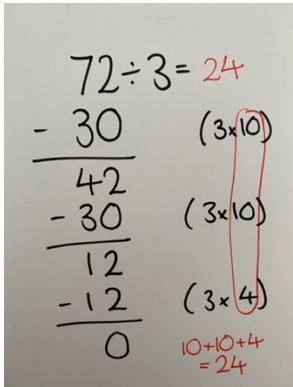 72÷3= 24
- 30 (3×10)
42
- 30 (3×10)
12
- 12 (3×4)
0
10+10+4
= 24